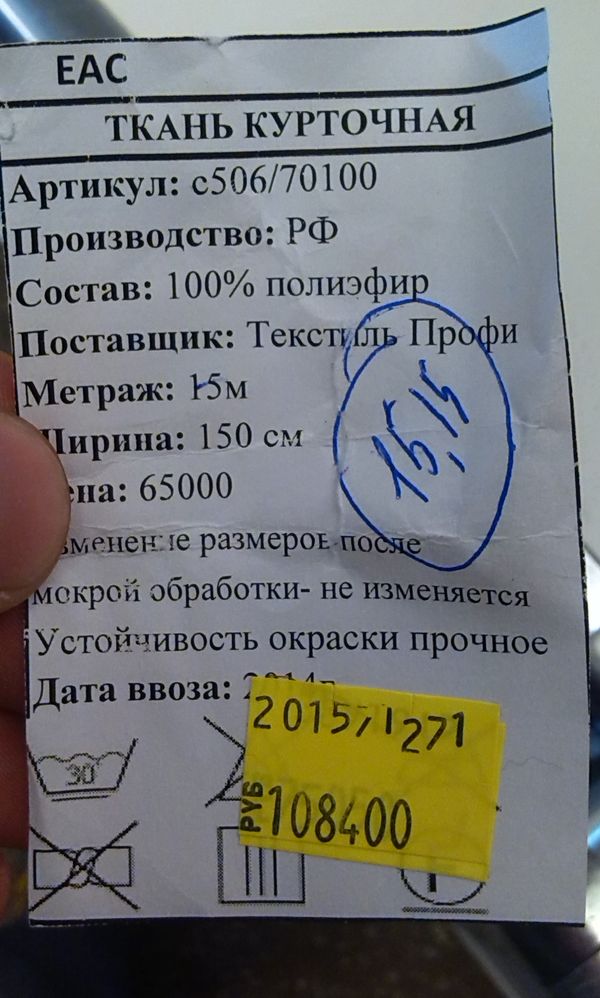 EAC
ТКАНЬ КУРТОЧНАЯ
Артикул: с506/70100
Производство: РФ
Состав: 100% полиэфир
Поставщик: Текстиль Профи
Метраж: 15м
15,15
Ширина: 150 см
ена: 65000
зменение размеров после
мокрой обработки- не изменяется
Устойчивость окраски прочное
Дата ввоза: 2014г
20157/1271
РУБ 108400
30